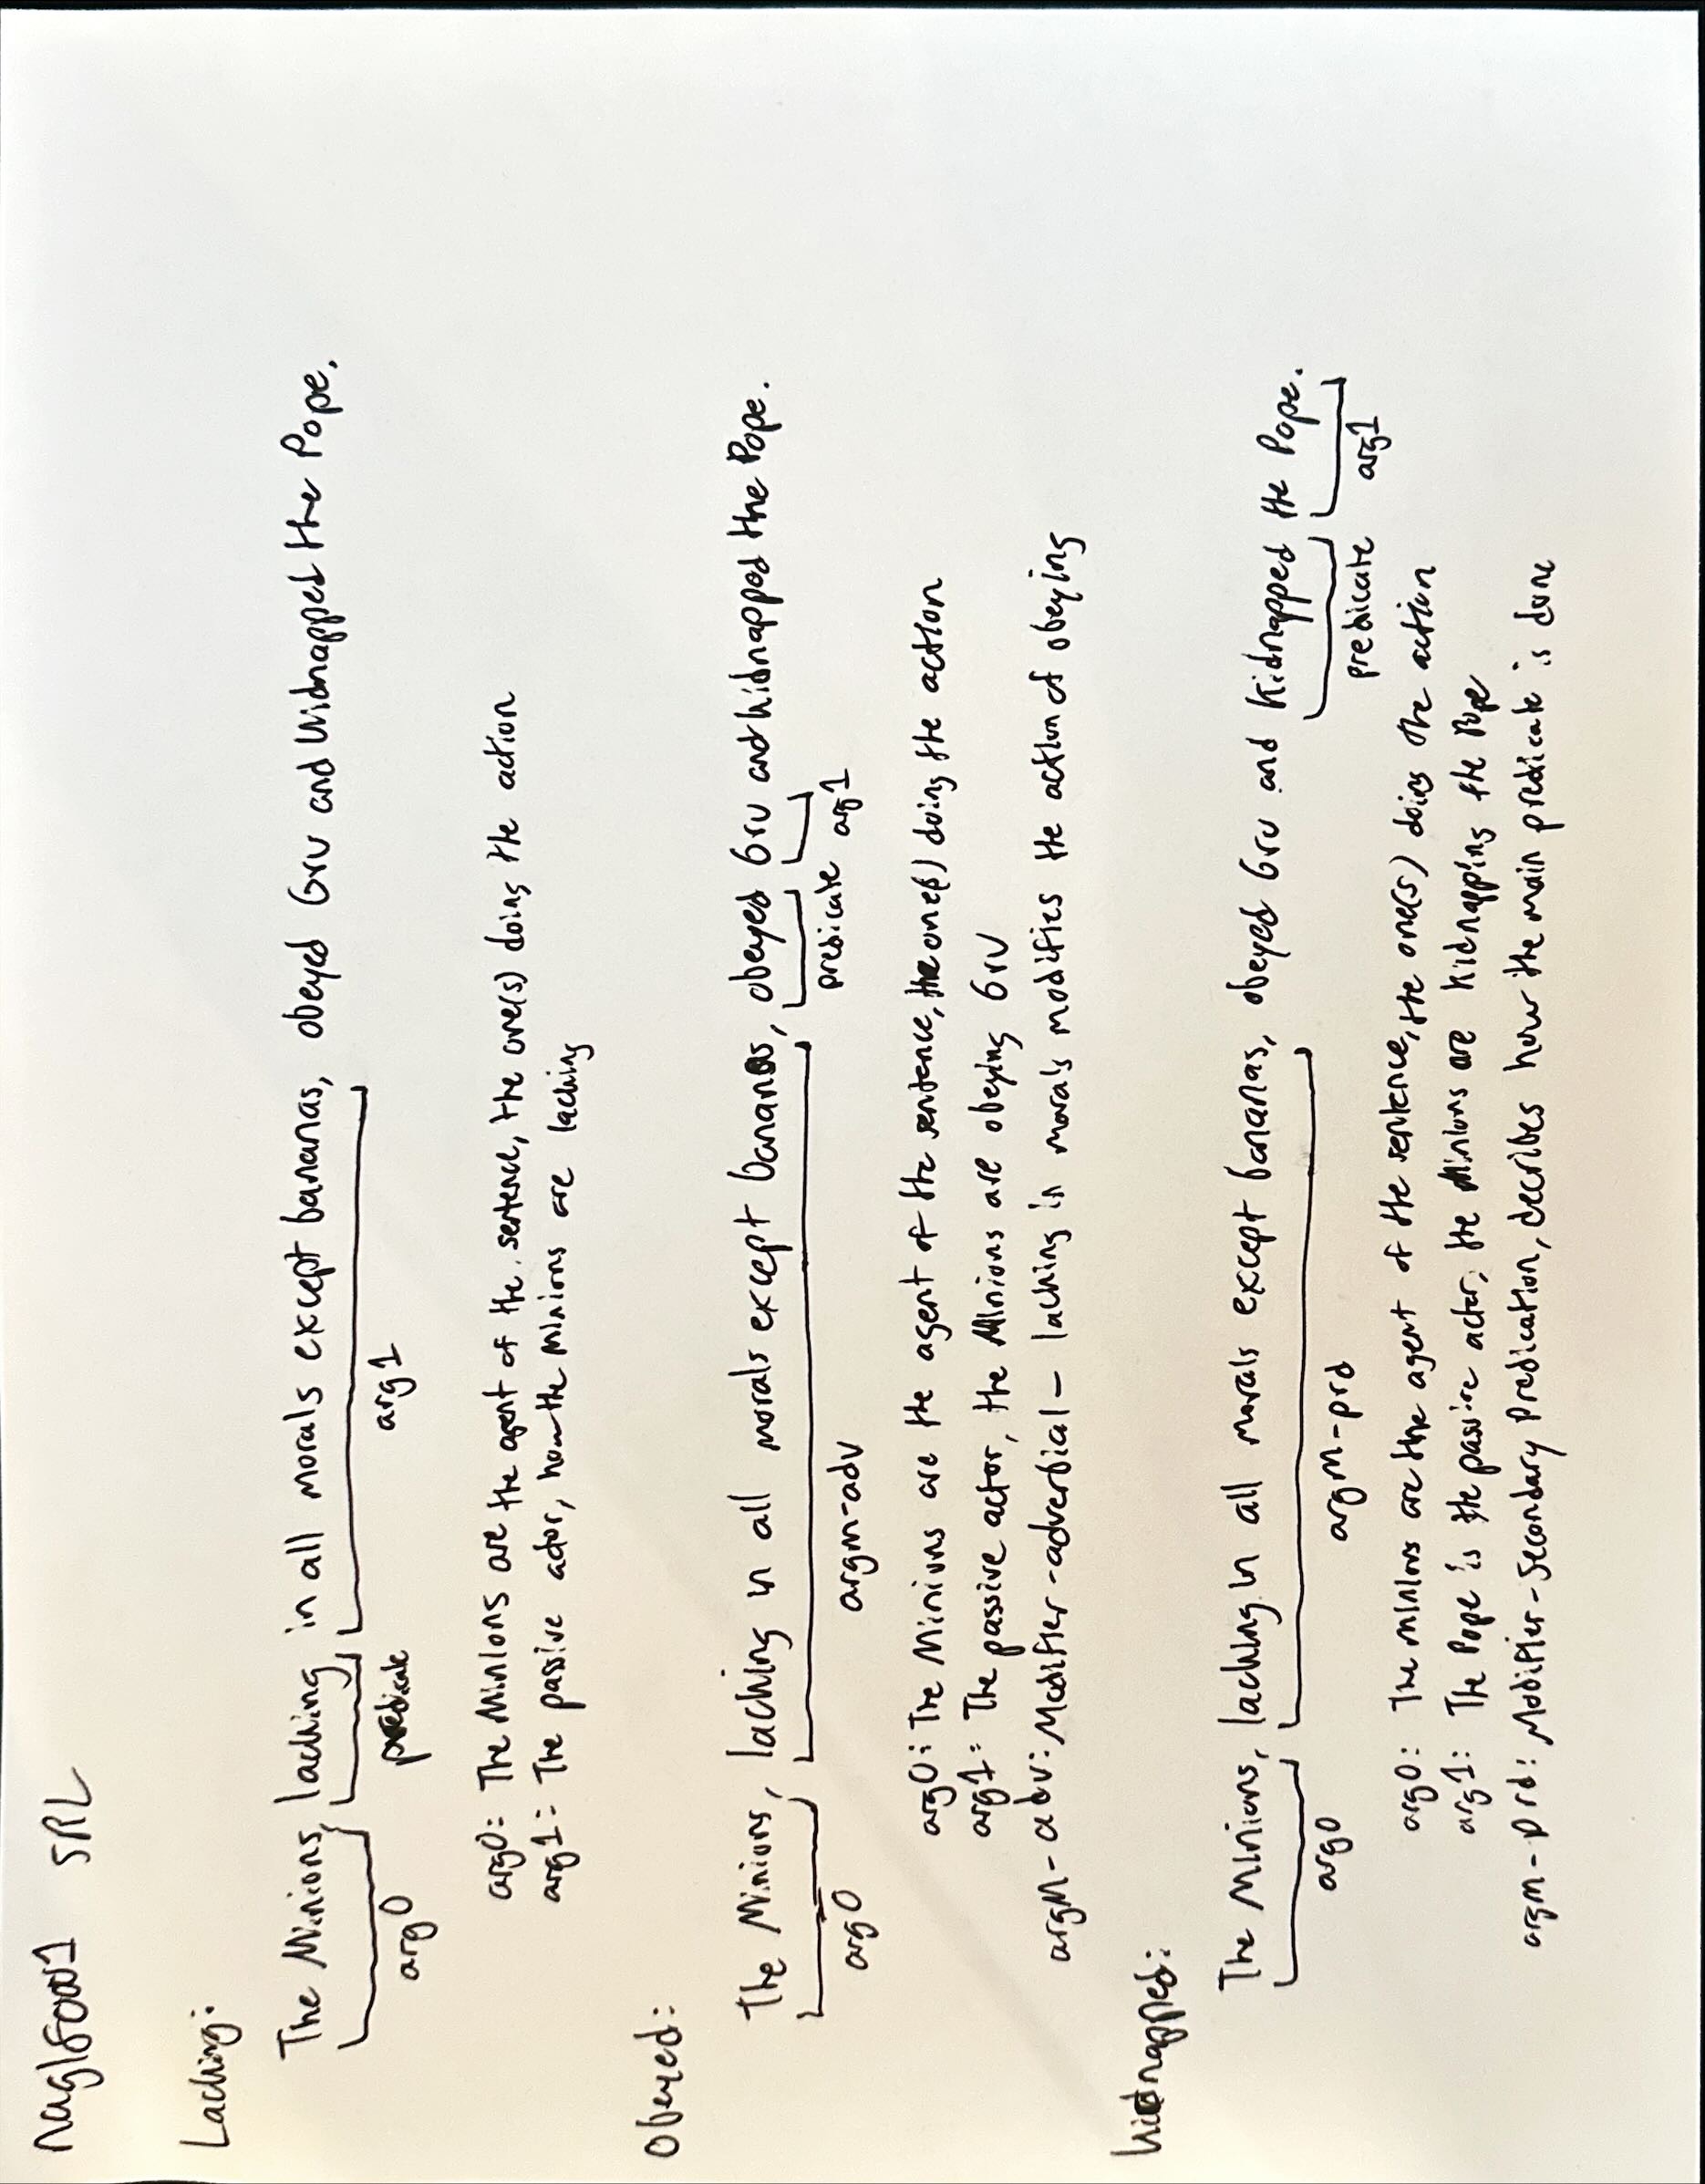 naglfoow1 SRL
Lacking:
The Minions, lacking in all morals except bananas, obeyed Gru and kidnapped the Pope.
arg0 predicate arg1
arg0: The Minions are the agent of the sentence, the one(s) doing the action
arg1: The passive actor, how the Minions are lacking
Obeyed:
The Minions, lacking in all morals except bananas, obeyed Gru and kidnapped the Pope.
arg0 argm-adv predicate arg1
arg0: The Minions are the agent of the sentence, the one(s) doing the action
arg1: The passive actor, the Minions are obeying Gru
argM-adv: Modifier-adverbial - lacking in morals modifies the action of obeying
kidnapped:
The Minions, lacking in all morals except bananas, obeyed Gru and kidnapped the Pope.
arg0 argm-prd predicate arg1
arg0: The minions are the agent of the sentence, the one(s) doing the action
arg1: The Pope is the passive actor, the Minions are kidnapping the Pope
argm-prd: Modifier-Secondary Predication, decribes how the main predicate is done